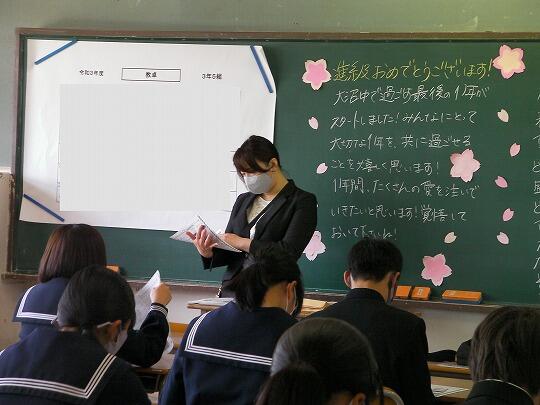 令和3年度 教卓 3年5組
進級おめでとうございます!
大沼中で過ごす最後の1年が
スタートしました!みんなにとって
大切な1年を、共に過ごせる
ことを嬉しく思います!
1年間、たくさんの愛を注いで
いきたいと思います!覚悟して
おいて下さいね!